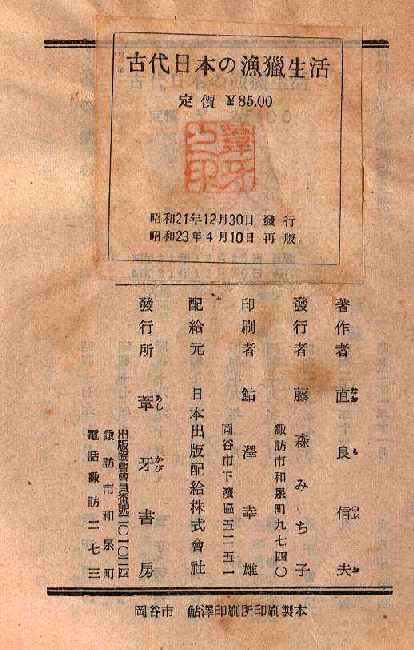 古代日本の漁獵生活
定價 ¥85.00
昭和21年12月30日 發行
昭和23年4月10日 再版
著作者 直良信夫
發行者 藤森みち子
諏訪市和泉町九七四〇
印刷者 鮎澤幸雄
岡谷市下濱區五一五一
配給元 日本出版配給株式會社
發行所 葦牙書房
あし かび
諏訪市和泉町
電話諏訪二七三
岡谷市 鮎澤印刷所印刷製本